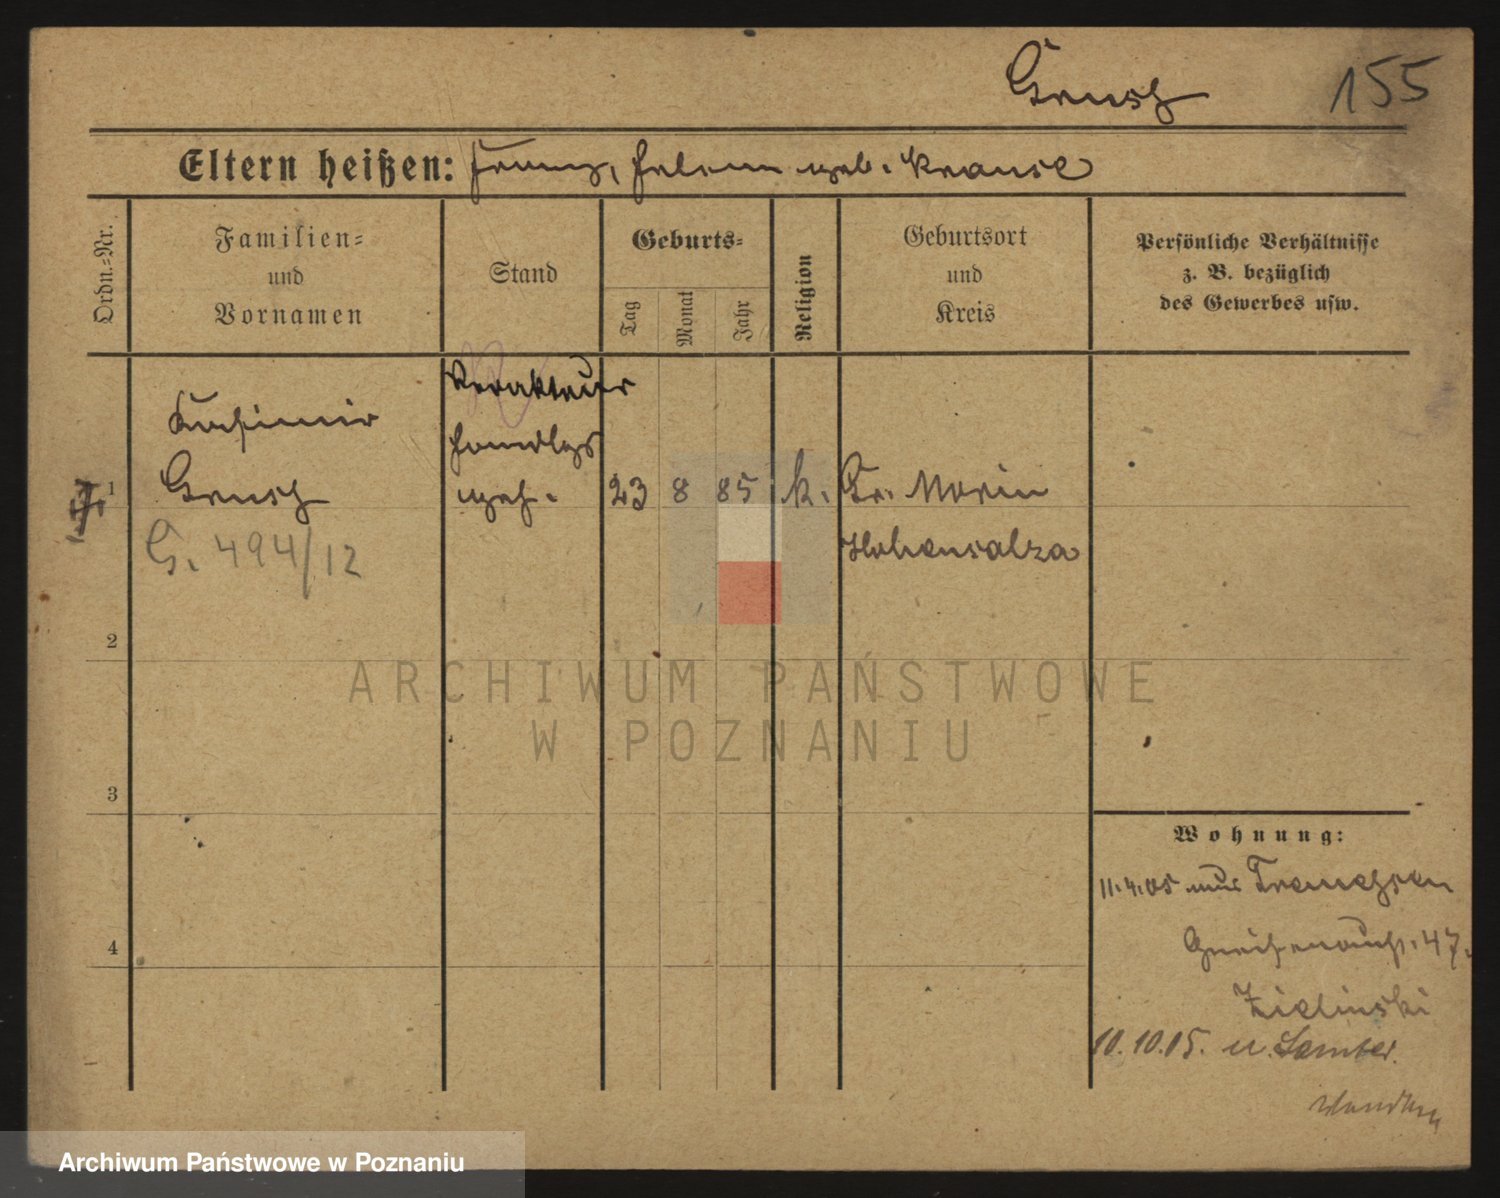 Grusz
155
Eltern heißen: Franz, Helene geb. Krause
Ordn.-Nr.
Familien-
und
Vornamen
Stand
Geburts-
Tag
Monat
Jahr
Religion
Geburtsort
und
Kreis
Persönliche Verhältnisse
z. B. bezüglich
des Gewerbes usw.
Redakteur
Kasimir
Handlgs
1 Grusz
geh.
23 8 85 k. Gr. Morin
G. 494/12
Hohensalza
2
ARCHIWUM PAŃSTWOWE
W POZNANIU
3
Wohnung:
11.4.05 aus Tremessen
Gneisenaustr. 47.
4
Zielinski
10.10.05. n. Samter
Archiwum Państwowe w Poznaniu